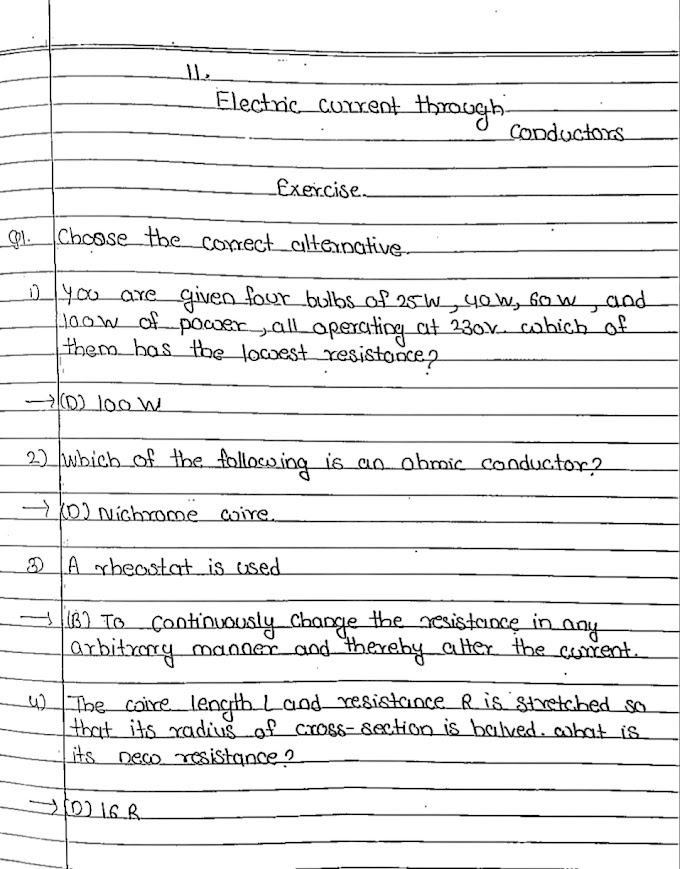 11.
Electric current through
conductors
Exercise.
Q1. Choose the correct alternative.
1) You are given four bulbs of 25W, 40W, 60W, and
100W of power, all operating at 230V. which of
them has the lowest resistance?
→ (D) 100 W
2) Which of the following is an ohmic conductor?
→ (D) Nichrome wire.
3) A rheostat is used
→ (B) To continuously change the resistance in any
arbitrary manner and thereby alter the current.
4) The wire length L and resistance R is stretched so
that its radius of cross-section is halved. what is
its new resistance?
→ (D) 16 R